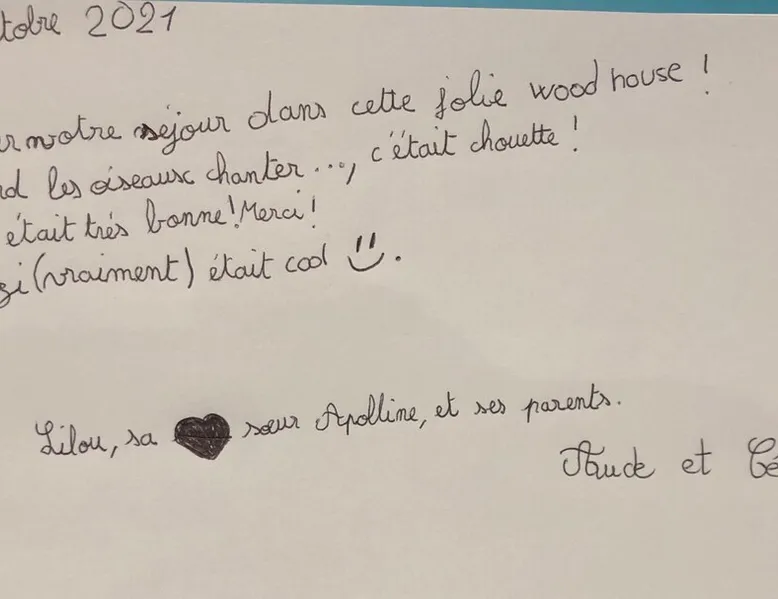 tobre 2021
ur notre séjour dans cette jolie wood house !
nd les oiseaux chanter..., c'était chouette !
était très bonne! Merci!
gi (vraiment) était cool
Lilou, sa ♥ sœur Apolline, et ses parents.
Aude et Cé